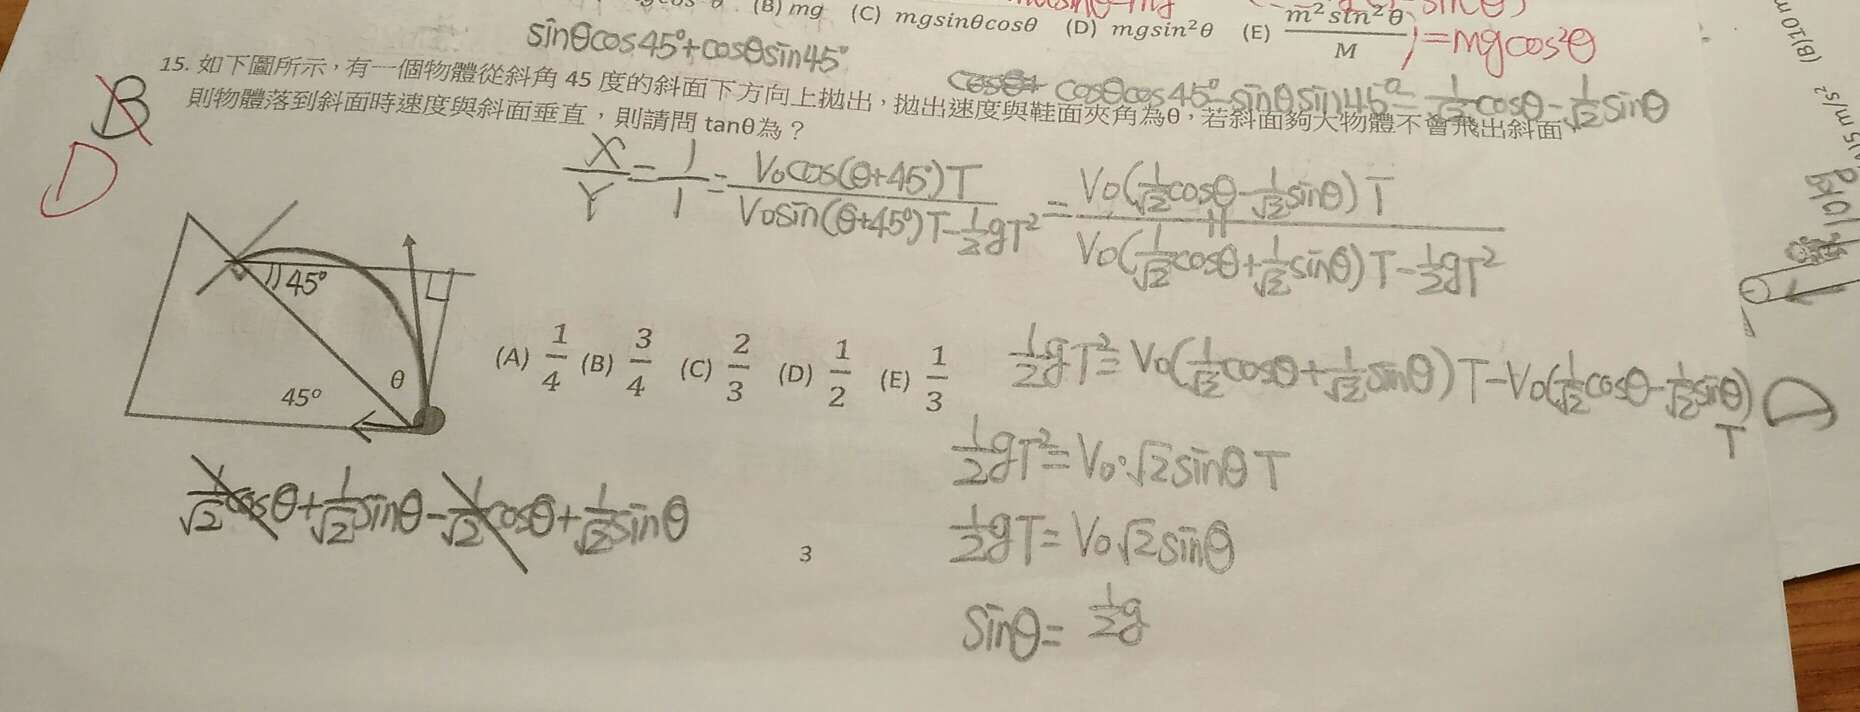 (B) mg (C) mgsinθcosθ (D) mgsin²θ (E) m²sin²θ/M
=mgcos²θ
sinθcos45°+cosθsin45°
15. 如下圖所示，有一個物體從斜角 45 度的斜面下方向上拋出，拋出速度與鞋面夾角為θ，若斜面夠大物體不會飛出斜面，
則物體落到斜面時速度與斜面垂直，則請問 tanθ為？
cosθcos45°-sinθsin45°=1/√2cosθ-1/√2sinθ
B
D
X/Y=1/1=V0cos(θ+45°)T/V0sin(θ+45°)T-1/2gT²=V0(1/√2cosθ-1/√2sinθ)T/V0(1/√2cosθ+1/√2sinθ)T-1/2gT²
45°
θ
45°
(A) 1/4 (B) 3/4 (C) 2/3 (D) 1/2 (E) 1/3
1/2gT²=V0(1/√2cosθ+1/√2sinθ)T-V0(1/√2cosθ-1/√2sinθ)T
1/2gT²=V0·√2sinθT
1/√2cosθ+1/√2sinθ-1/√2cosθ+1/√2sinθ
1/2gT=V0√2sinθ
sinθ=1/2g
3